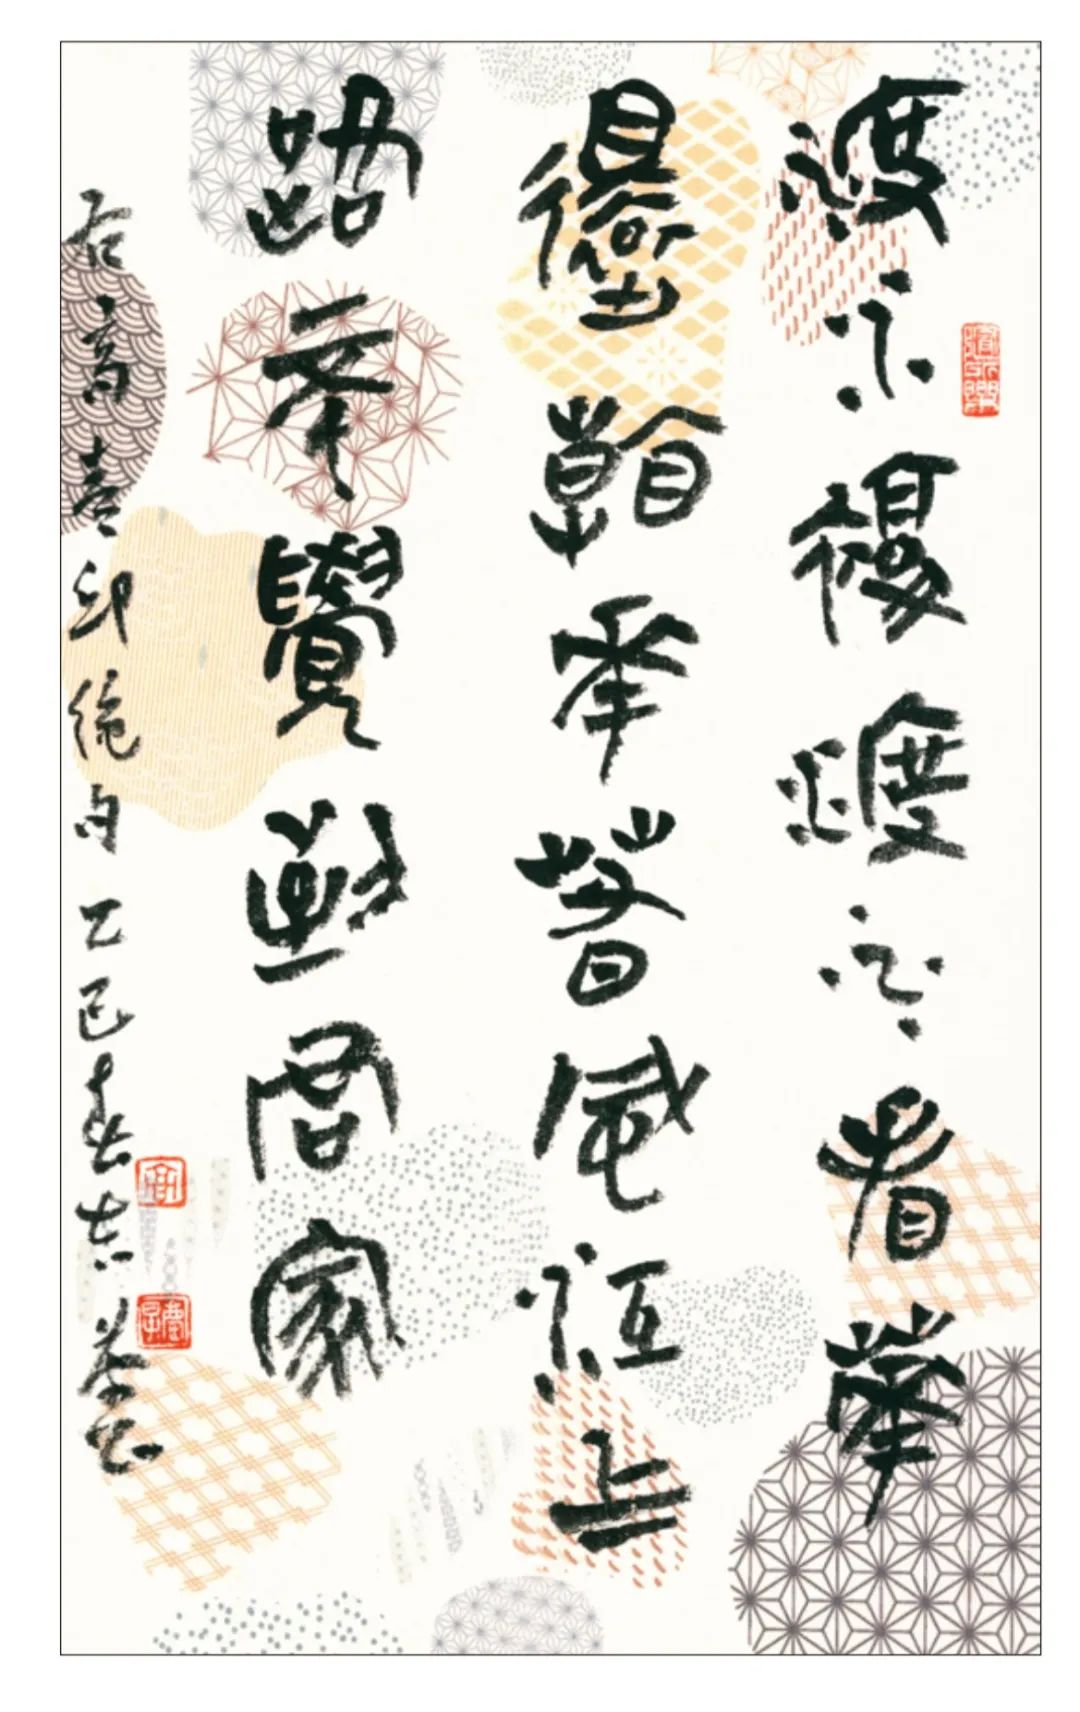 渡水復渡水看花
還看花春風江上
路不覺到君家
右高青邱绝句乙巳春吉